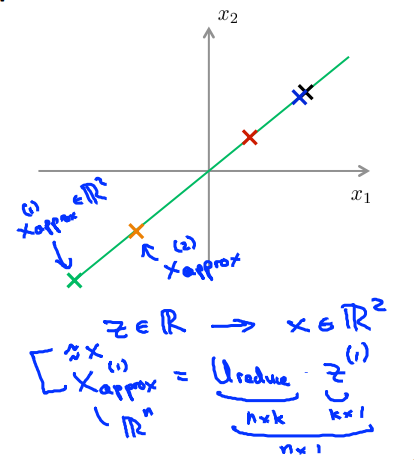 x₂
x₁
x⁽¹⁾approx ∈ ℝ²
x⁽²⁾approx
z ∈ ℝ → x ∈ ℝ²
≈ x
x⁽¹⁾approx = Ureduce · z⁽¹⁾
ℝⁿ
n×k
k×1
n×1